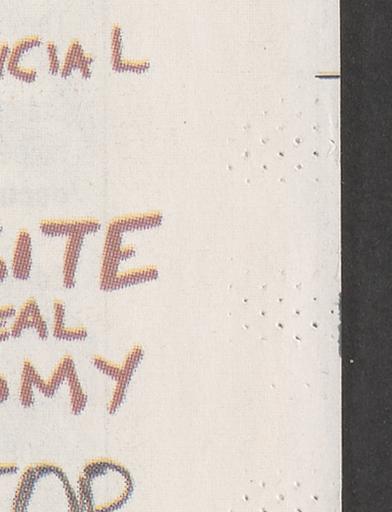 NCIAL
SITE
EAL
OMY
TOR